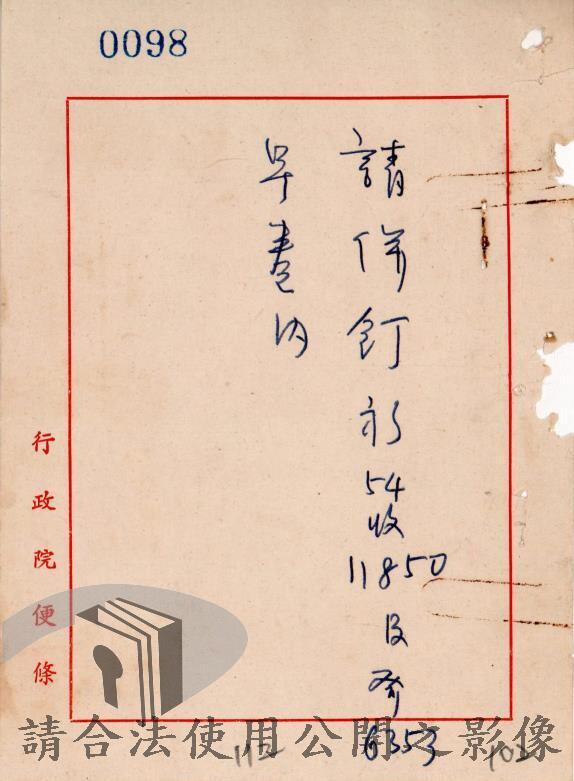 0098
請併釘於54收11850及發6353
早卷內
行政院便條
請合法使用公開之影像
112
102